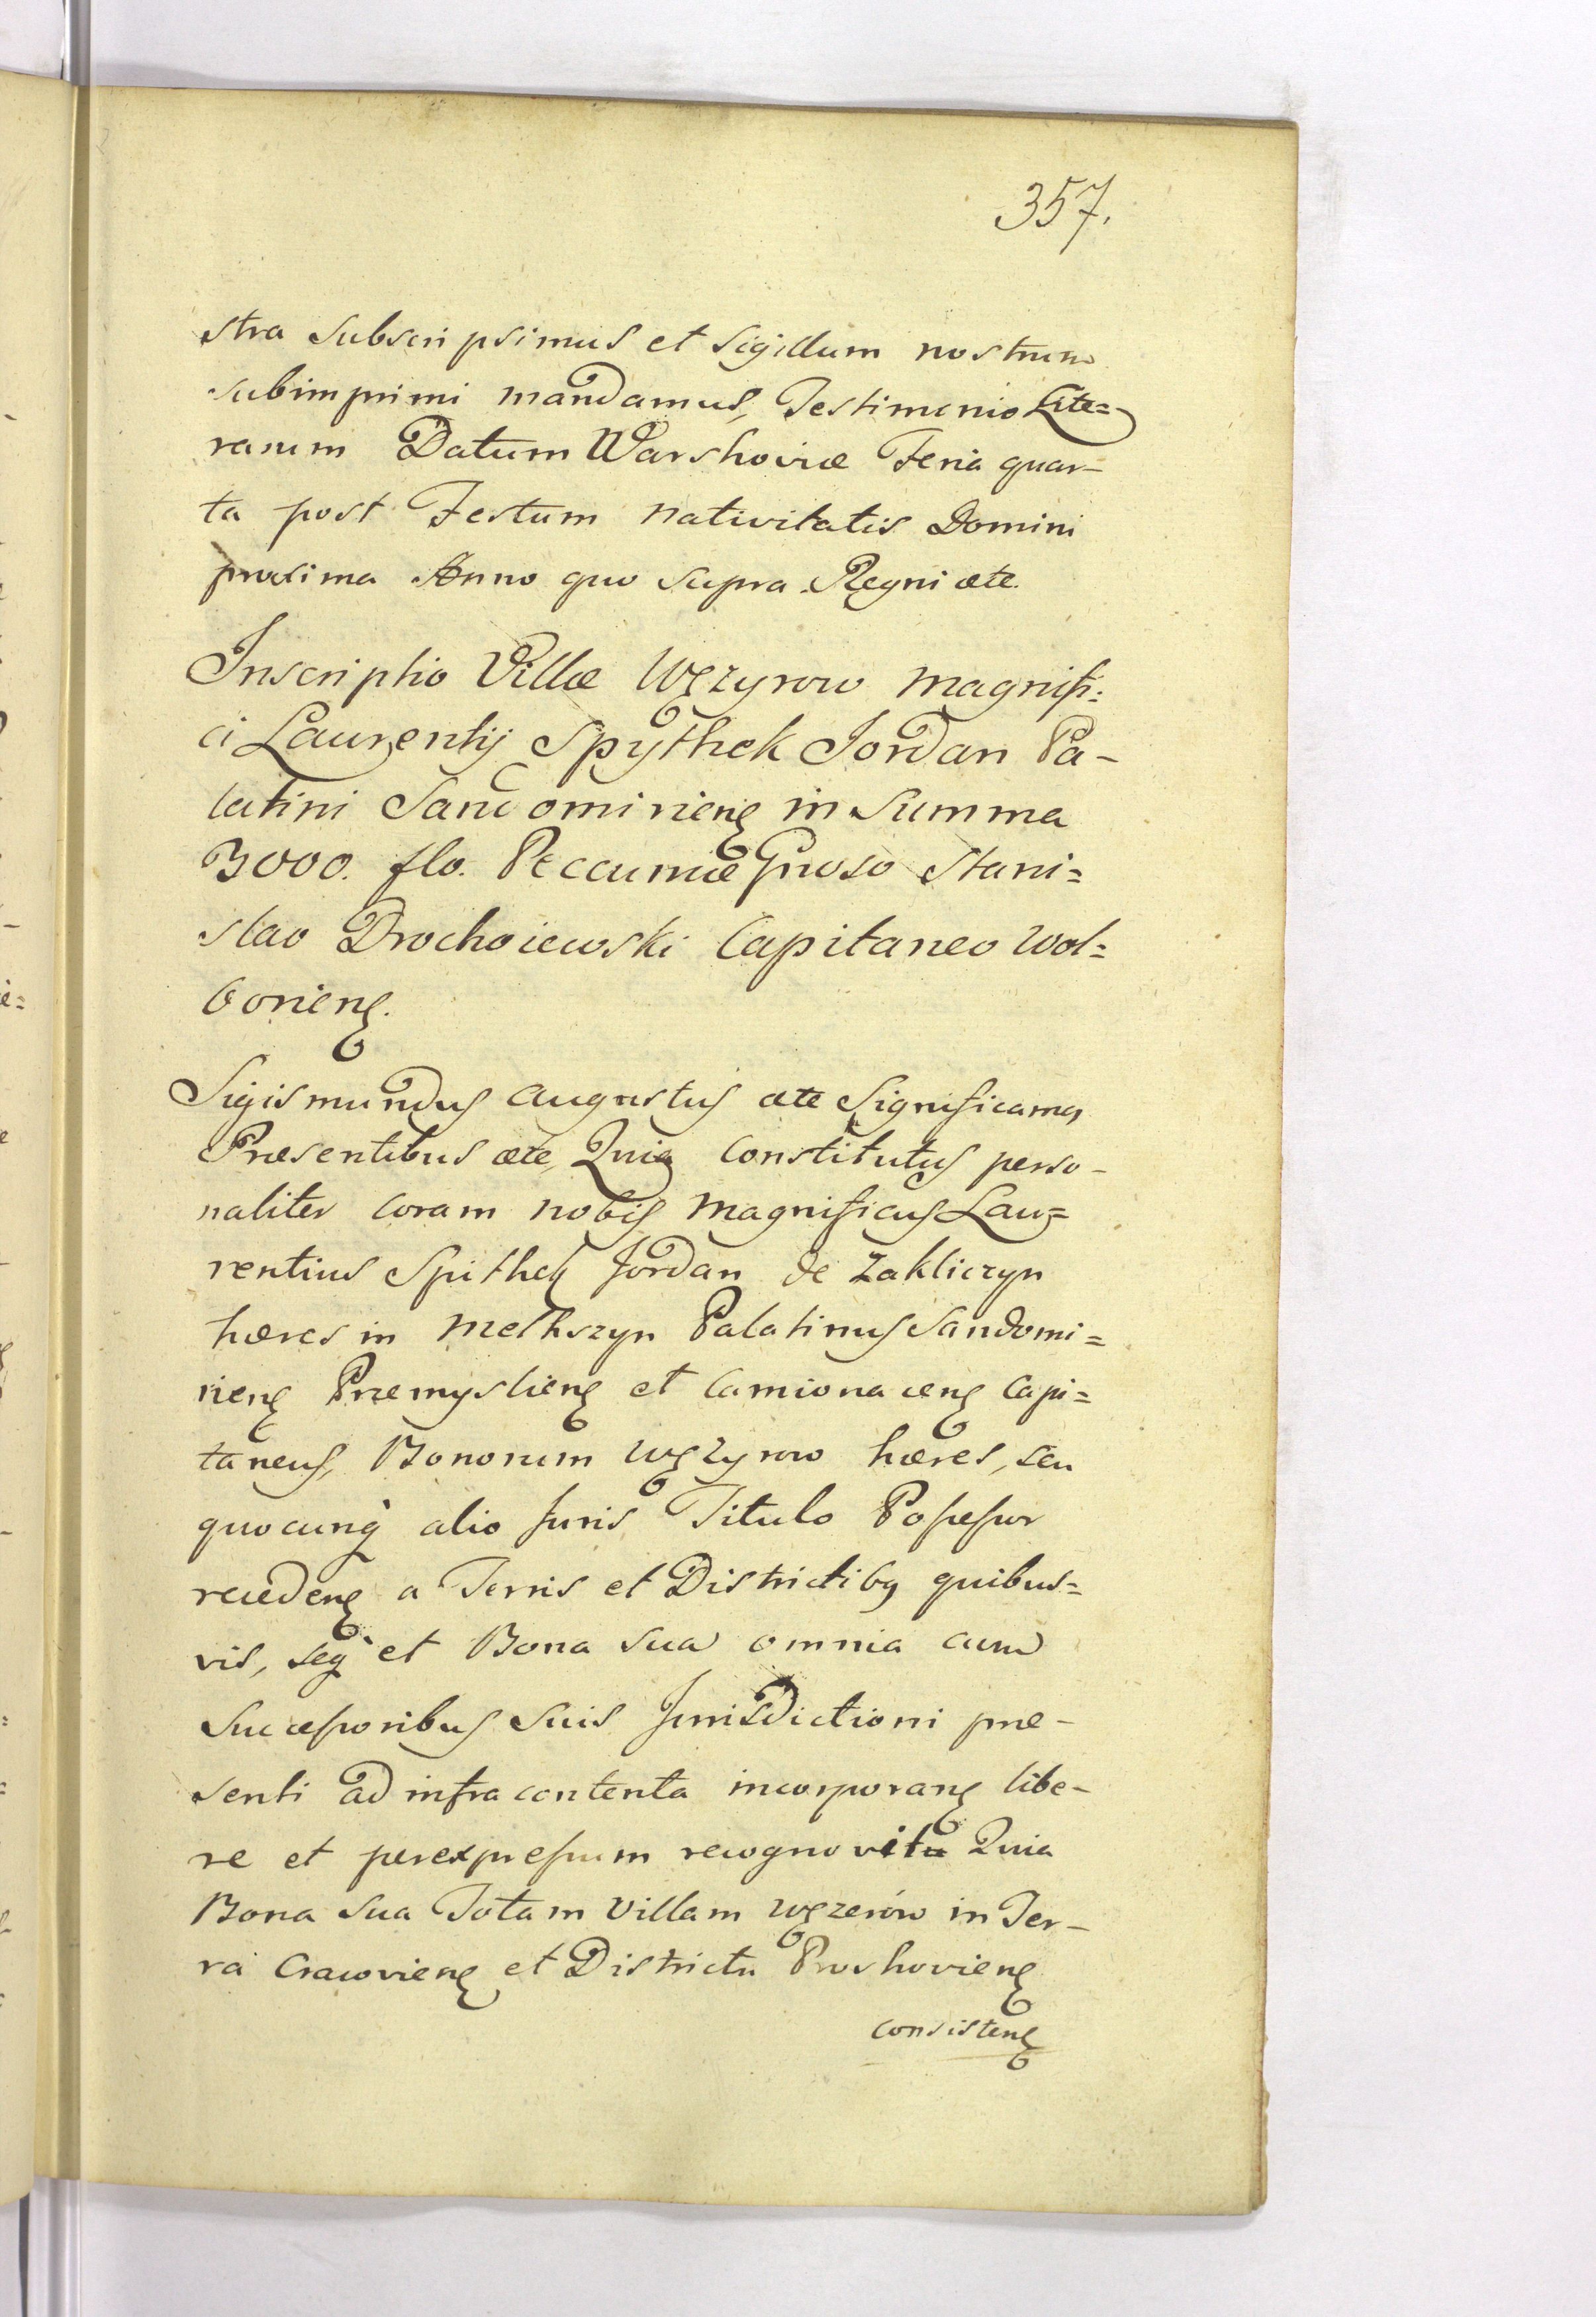 357.
stra subscripsimus et Sigillum nostrum
subimprimi mandamus, Testimonio Lite=
rarum Datum Warshoviæ Feria quar-
ta post Festum nativitatis Domini
proxima Anno quo supra Regni æte.
Inscriptio Villæ Węzyrow magnifi:
ci Laurentij Spythek Jordan Pa-
latini Sandomirieng in Summa
3000. flo. Peccuniæ Gnoso Stani=
slao Drochoiewski Capitaneo Wol=
borieng.
Sigismundus Augustus æte Significamq
Præsentibus æte, Quia Constitutus perso-
naliter coram nobis Magnificus Lau=
rentius Spithek Jordan de Zakliczyn
hæres in Melhszyn Palatinus Sandomi=
rieng Præmyslieng et Camionaceng Capi=
taneus, Bonorum Węzyrow hæres, seu
quocunq alio Juris Titulo Possessor
recedeng a Terris et Districtibq quibus=
vis, seq et Bona sua omnia cum
Successoribus suis Jurisdictioni præ-
senti ad infra contenta incorporang libe-
re et perexpressum recognovit Quia
Bona sua Totam Villam Węzerów in Ter-
ra Cracovieng et Districtu Proshovieng
consisteng